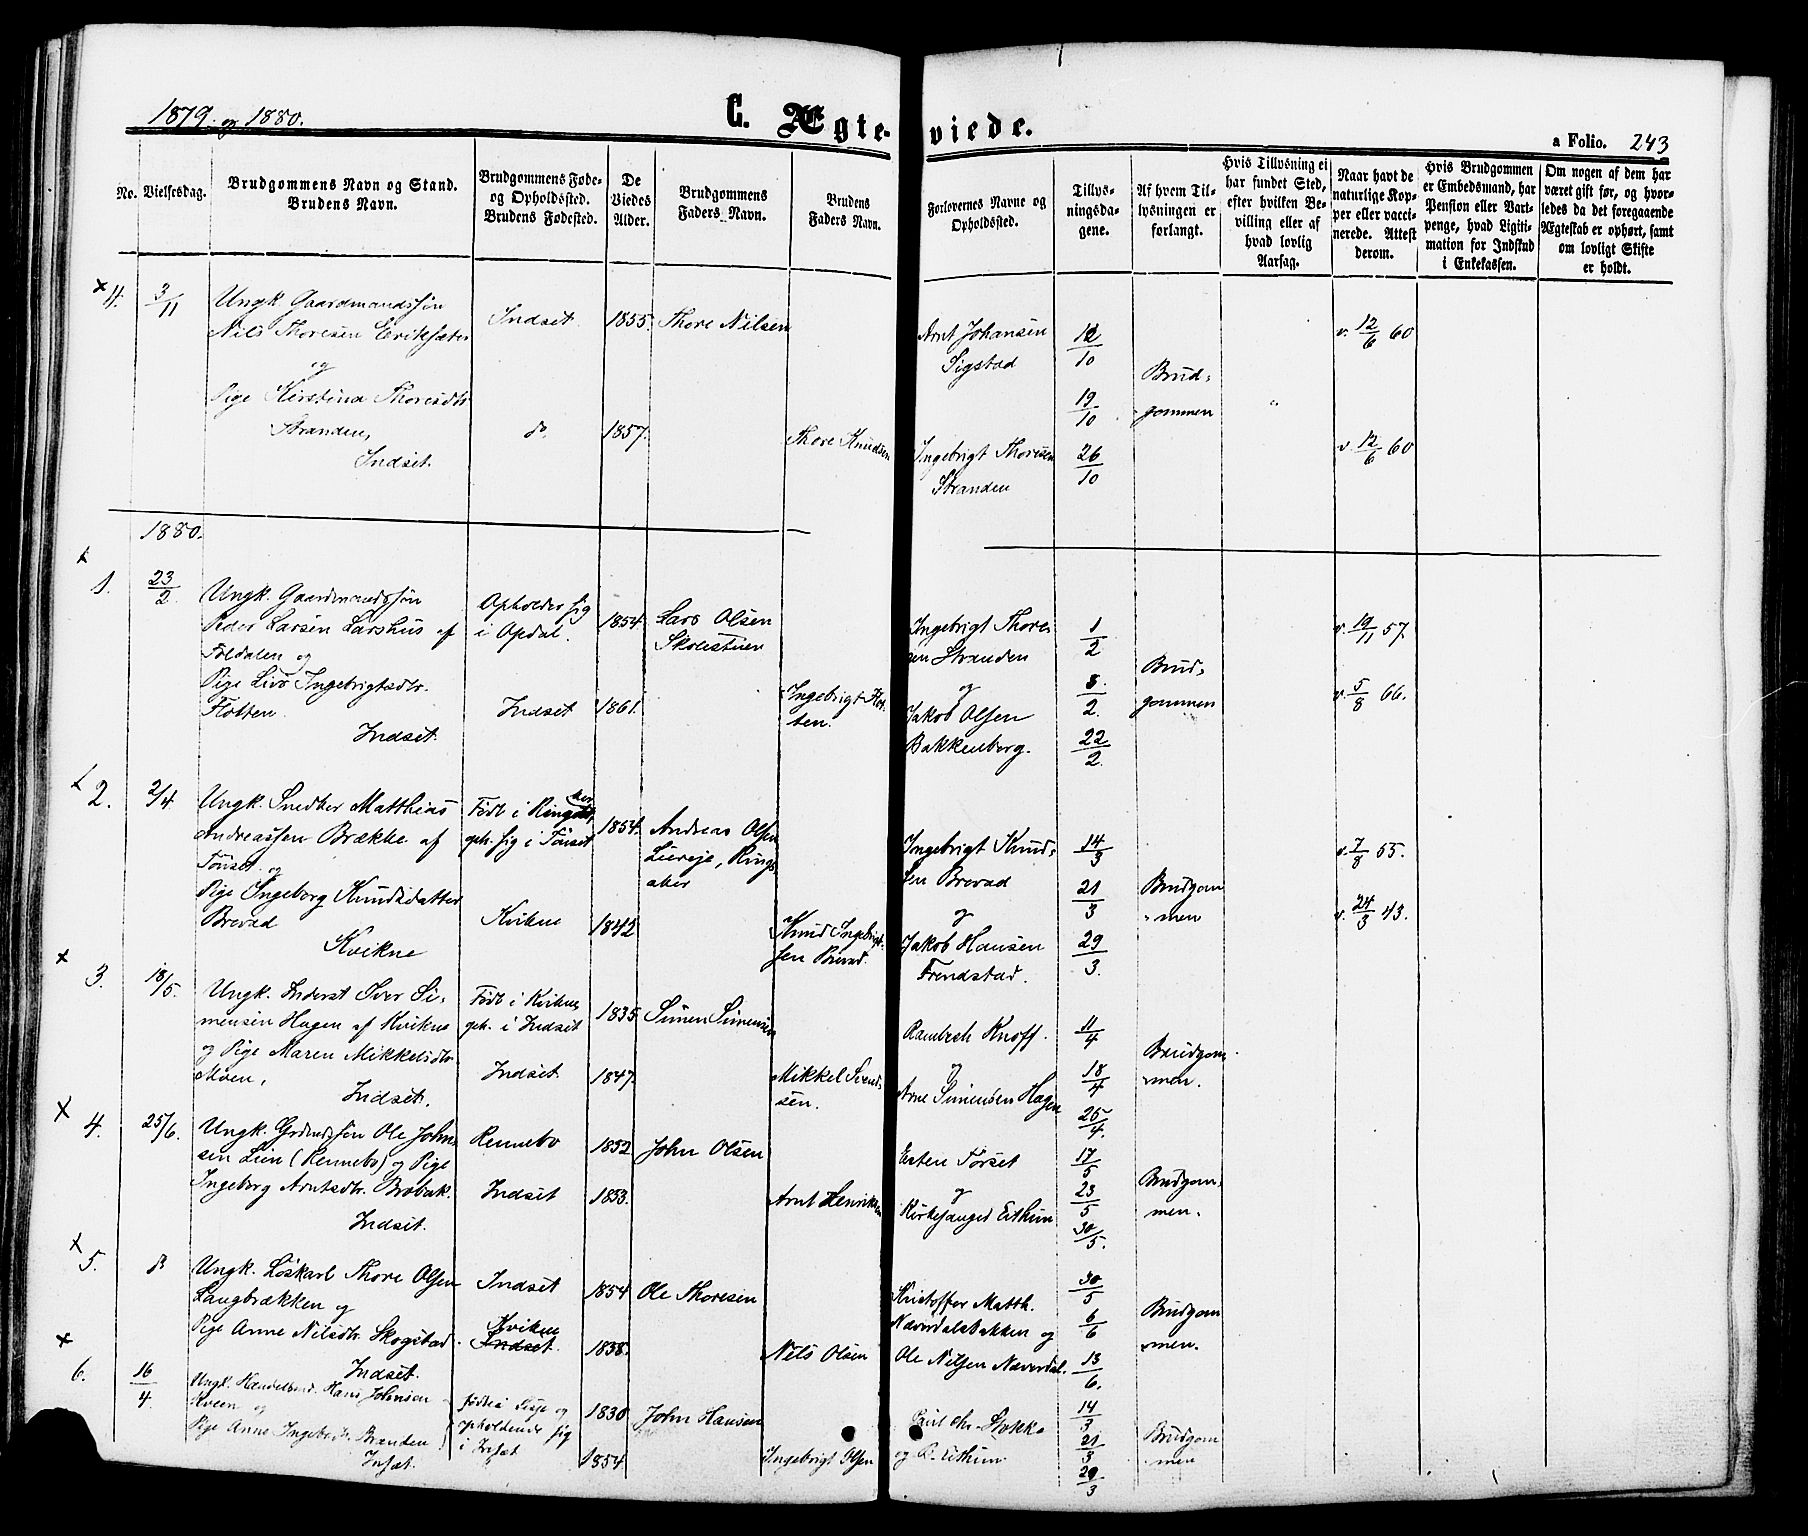 1879. og 1880.
C. Ægteviede.
a Folio. 243
No.
Vielsesdag.
Brudgommens Navn og Stand.
Brudens Navn.
Brudgommens Føde-
og Opholdssted.
Brudens Fødested.
De
Viedes
Alder.
Brudgommens
Faders Navn.
Brudens
Faders Navn.
Forlovernes Navne og
Opholdssted.
Tillys-
ningsda-
gene.
Af hvem Til-
lysningen er
forlangt.
Hvis Tillysning ei
har fundet Sted,
efter hvilken Be-
villing eller af
hvad lovlig
Aarsag.
Naar havt de
naturlige Kop-
per eller vacci-
nerede. Attest
derom.
Hvis Brudgommen
er Embedsmand, har
Pension eller Vart-
penge, hvad Ligiti-
mation for Indskud
i Enkekassen.
Om nogen af dem har
været gift før, og hvor-
ledes da det foregaaende
Ægteskab er ophørt, samt
om lovligt Skifte
er holdt.
x 4. 3/11
Ungk. Gaardmandssøn
Nils Thoresen Eriksæter
og
Pige Kirstina Thoresdtr
Stranden,
Indset.
Indset
do.
1855.
1857.
Thore Nilsen
Thore Knudsen
Arnt Johansen
Sigstad
Ingebrigt Thoresen
Stranden
12/10
19/10
26/10
Brud-
gommen
"
v. 12/6 60
v. 12/6 60
1880.
x 1. 23/2.
Ungk. Gaardmandssøn
Peder Larsen Larshus af
Foldalen og
Pige Live Ingebrigtsdtr.
Flotten.
Indset.
Opholder sig
i Opdal.
Indset
1854.
1861.
Lars Olsen
Skolestuen
Ingebrigt Flot-
ten.
Ingebrigt Thore-
sen Stranden
og
Jakob Olsen
Bakkenberg.
1/2
8/2.
22/2.
Brud-
gommen
v. 19/11 57.
v. 5/8 66.
x 2. 2/4.
Ungk. Snedker Matthias
Andreassen Brække af
Tönset og
Pige Ingeborg Knudsdatter
Brevad
Kvikne
Født i Ringsaker,
oph. sig i Tönset
Kvikne
1854.
1842
Andreas Olsen
Liereje, Rings-
aker
Knud Ingebrigt-
sen Brevad.
Ingebrigt Knud-
sen Brevad
og
Jakob Hansen
Frendstad.
14/3
21/3
29/3.
Brudgom
men
v. 7/8 55.
v. 24/3 43.
x 3. 18/5.
Ungk. Inderst Iver Si-
mensen Hagen af Kvikne
og Pige Maren Mikkelsdtr.
Moen,
Indset.
Født i Kvikne,
oph. i Indset
Indset
1835.
1847.
Simen Simensen
Mikkel Svend-
sen.
Rambech Knoff.
og
Arne Simensen Hagen
11/4
18/4
25/4.
Brudgom-
men.
x 4. 25/6.
Ungk. Grdmdssøn Ole John-
sen Lien (Rennebo) og Pige
Ingeborg Arntsdtr. Brobak.
Indset.
Rennebo
Indset
1852
1853.
John Olsen
Arnt Henriksen
Esten Torset
og
Kirkesanger Eithun
17/5
23/5
30/5.
Brudgom-
men.
x 5. do
Ungk. Løskarl Thore Olsen
Langbrækken og
Pige Anne Nilsdtr. Skogstad.
Indset.
Indset
Kvikne
Indset.
1854
1838.
Ole Thoresen
Nils Olsen
Kristoffer Matth.
Næverdalsbakken og
Ole Nilsen Næverdal.
30/5
6/6
13/6.
Brudgom
men.
x 6. 16/4
Ungk. Handelsmd. Hans Johnsen
Kveen og
Pige Anne Ingebrdtr. Brænden
Insæt.
opholdende sig
i Insæt
1830
1854
John Hansen
Ingebrigt Olsen
Paul Chr. Stokke
og
14/3
21/3
29/3
Brudgom
men